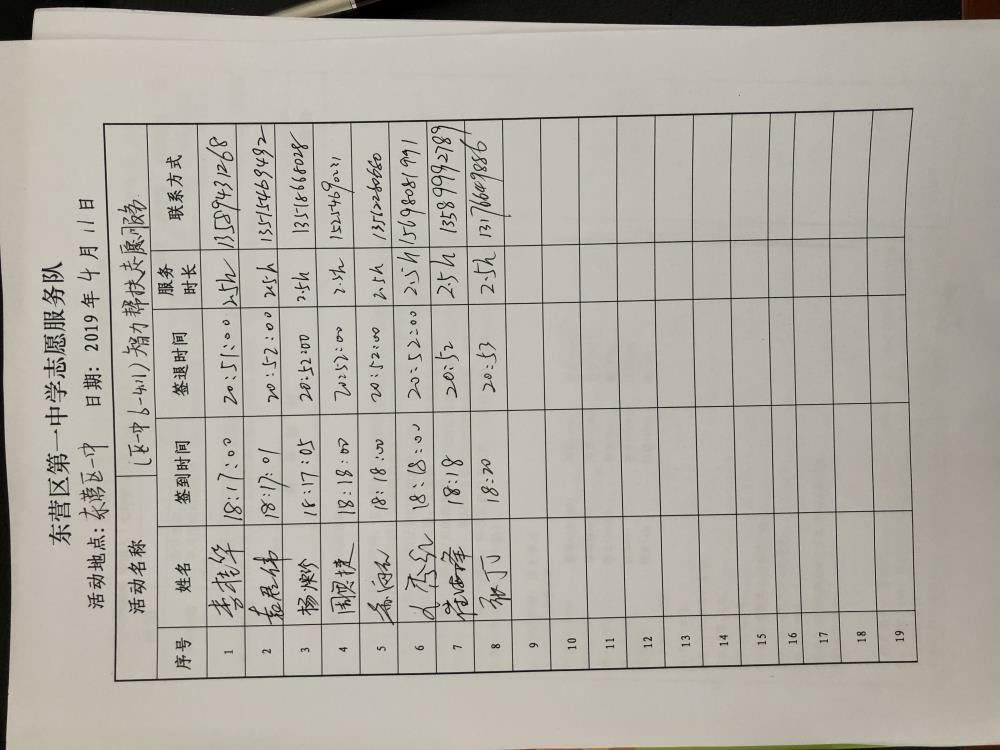 东营区第一中学志愿服务队
活动地点：东营区一中 日期：2019年4月11日
活动名称 (区一中6-411)智力帮扶志愿服务
序号 姓名 签到时间 签退时间 服务时长 联系方式
1 李桂华 18:17:00 20:51:00 2.5h 13589431268
2 袁君伟 18:17:01 20:52:00 2.5h 13515469492
3 杨焕珍 18:17:05 20:52:00 2.5h 13518668028
4 周贤捷 18:18:00 20:52:00 2.5h 15254690221
5 18:18:00 20:52:00 2.5h 13562280660
6 18:18:00 20:52:00 2.5h 15698081991
7 崔海峰 18:18 20:52 2.5h 13589992789
8 张丁丁 18:20 20:53 2.5h 13176649886
9
10
11
12
13
14
15
16
17
18
19